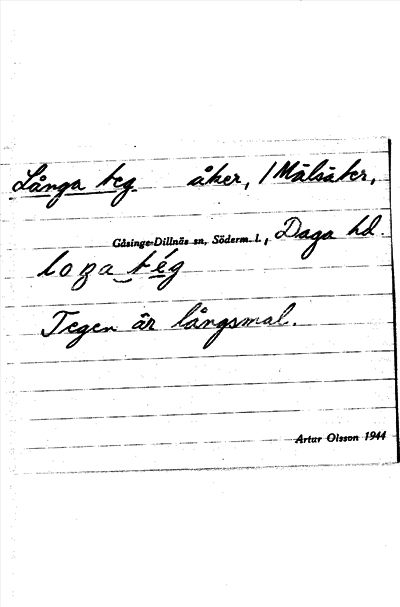 Långa teg. åker, / Målsåker,
Gåsinge-Dillnäs sn, Söderm. l., Daga hd.
loŋa ‿ tég
Tegen är långsmal.
Artur Olsson 1944